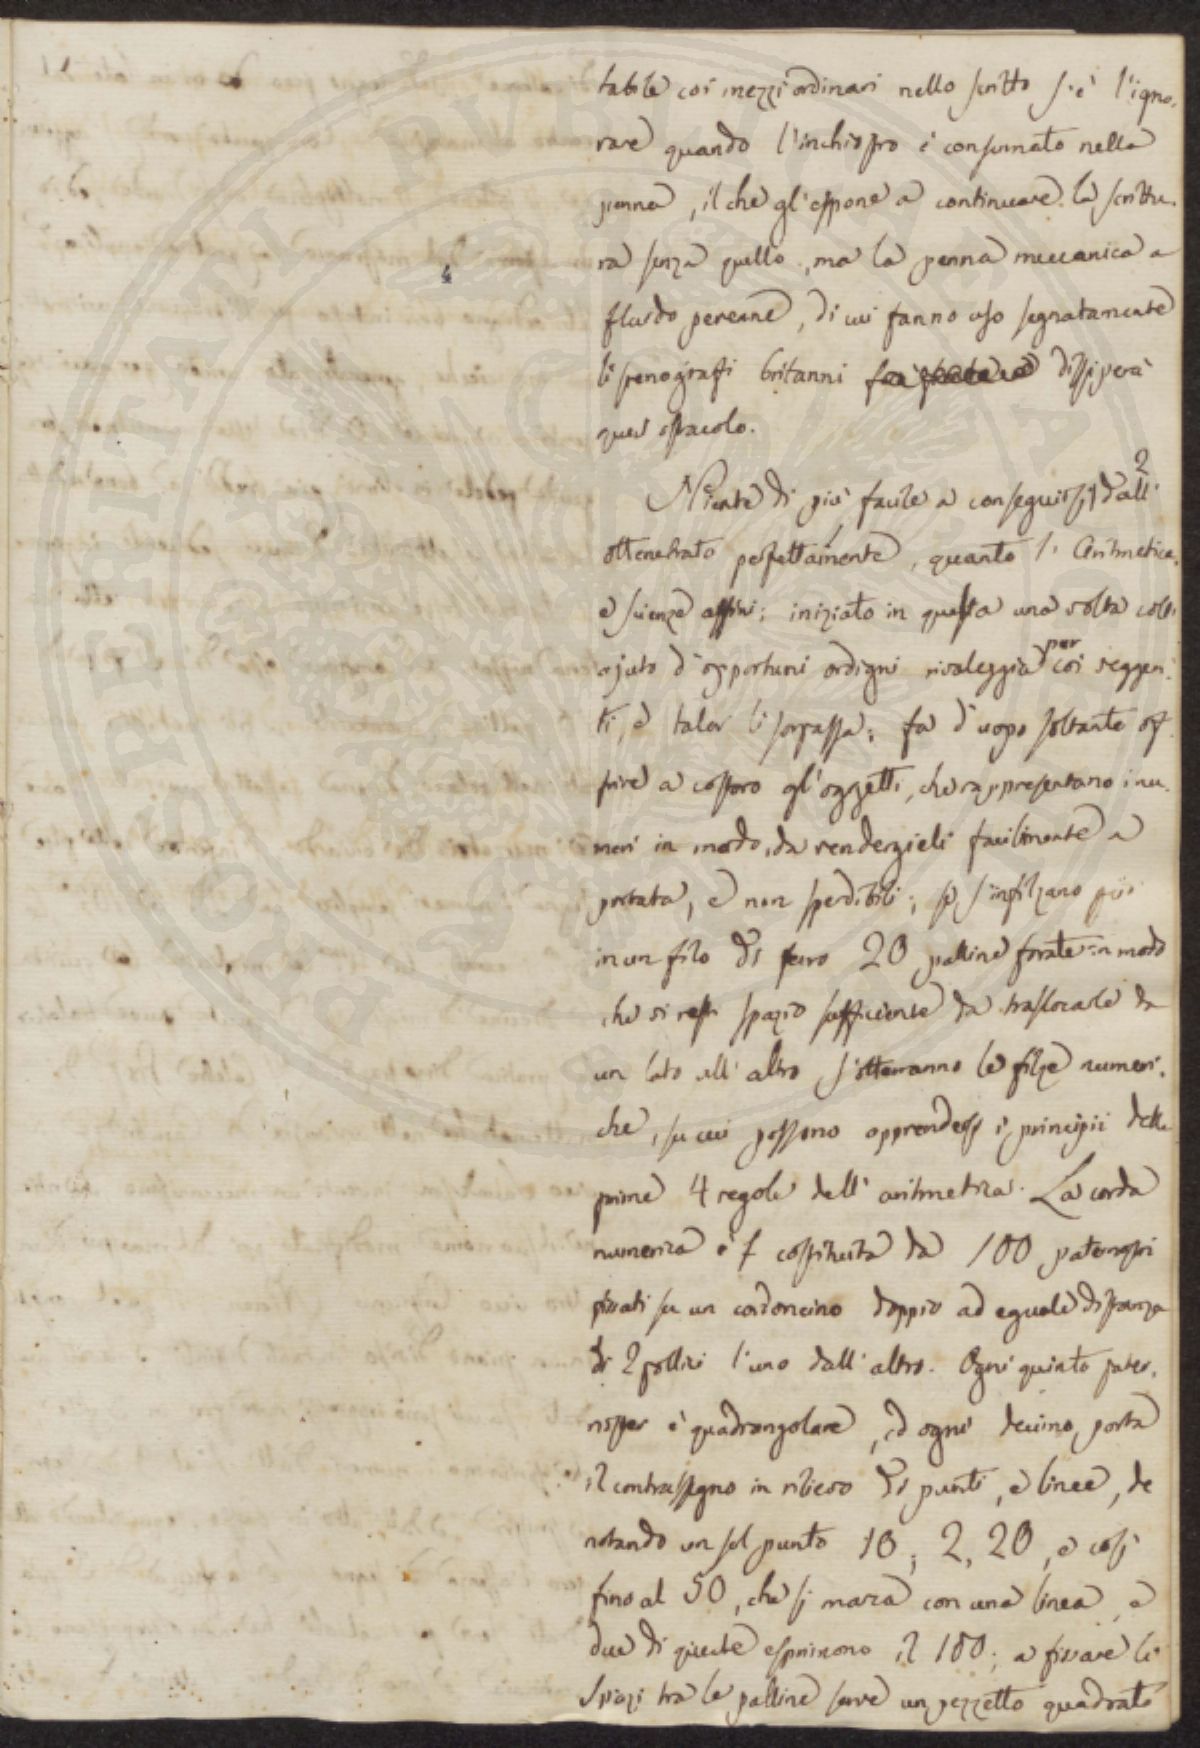 tabile coi mezzi ordinari nello scritto s'è l'igno-
rare quando l'inchiostro è consumato nella
penna, il che gl'espone a continuare la scrittu-
ra senza quello, ma la penna meccanica a
fluido perenne, di cui fanno uso segnatamente
li stenografi britanni dissiperà
quest'ostacolo.
Niente di più facile a conseguirsi dall' 2
ottenebrato perfettamente, quanto l'Aritmetica,
e scienze affini; iniziato in questa una volta coll'
ajuto d'opportuni ordigni rivaleggia per coi veggen-
ti, e talor li sorpassa; fa d'uopo soltanto of-
frire a costoro gl'oggetti, che rappresentano i nu-
meri in modo, da renderglieli facilmente a
portata, e non sperdibili; se s'infilzano
in un filo di ferro 20 palline forate in modo
che vi resti spazio sufficiente da traslocarle da
un lato all'altro s'otterranno le filze numeri-
che, su cui possono apprendersi i principii delle
prime 4 regole dell'aritmetica. La corda
numerica è costituita da 100 paternostri
fissati su un cordoncino doppio ad eguale distanza
di 2 pollici l'uno dall'altro. Ogni quinto pater-
noster è quadrangolare, ed ogni decimo, porta
il contrassegno in rilievo di punti, e linee, de
notando un sol punto 10; 2, 20, e così
fino al 50, che si marca con una linea, e
due di queste esprimono il 100; a fissare li
spazi tra le palline serve un pezzetto quadrato
PROPRIETATI PVBLICAE